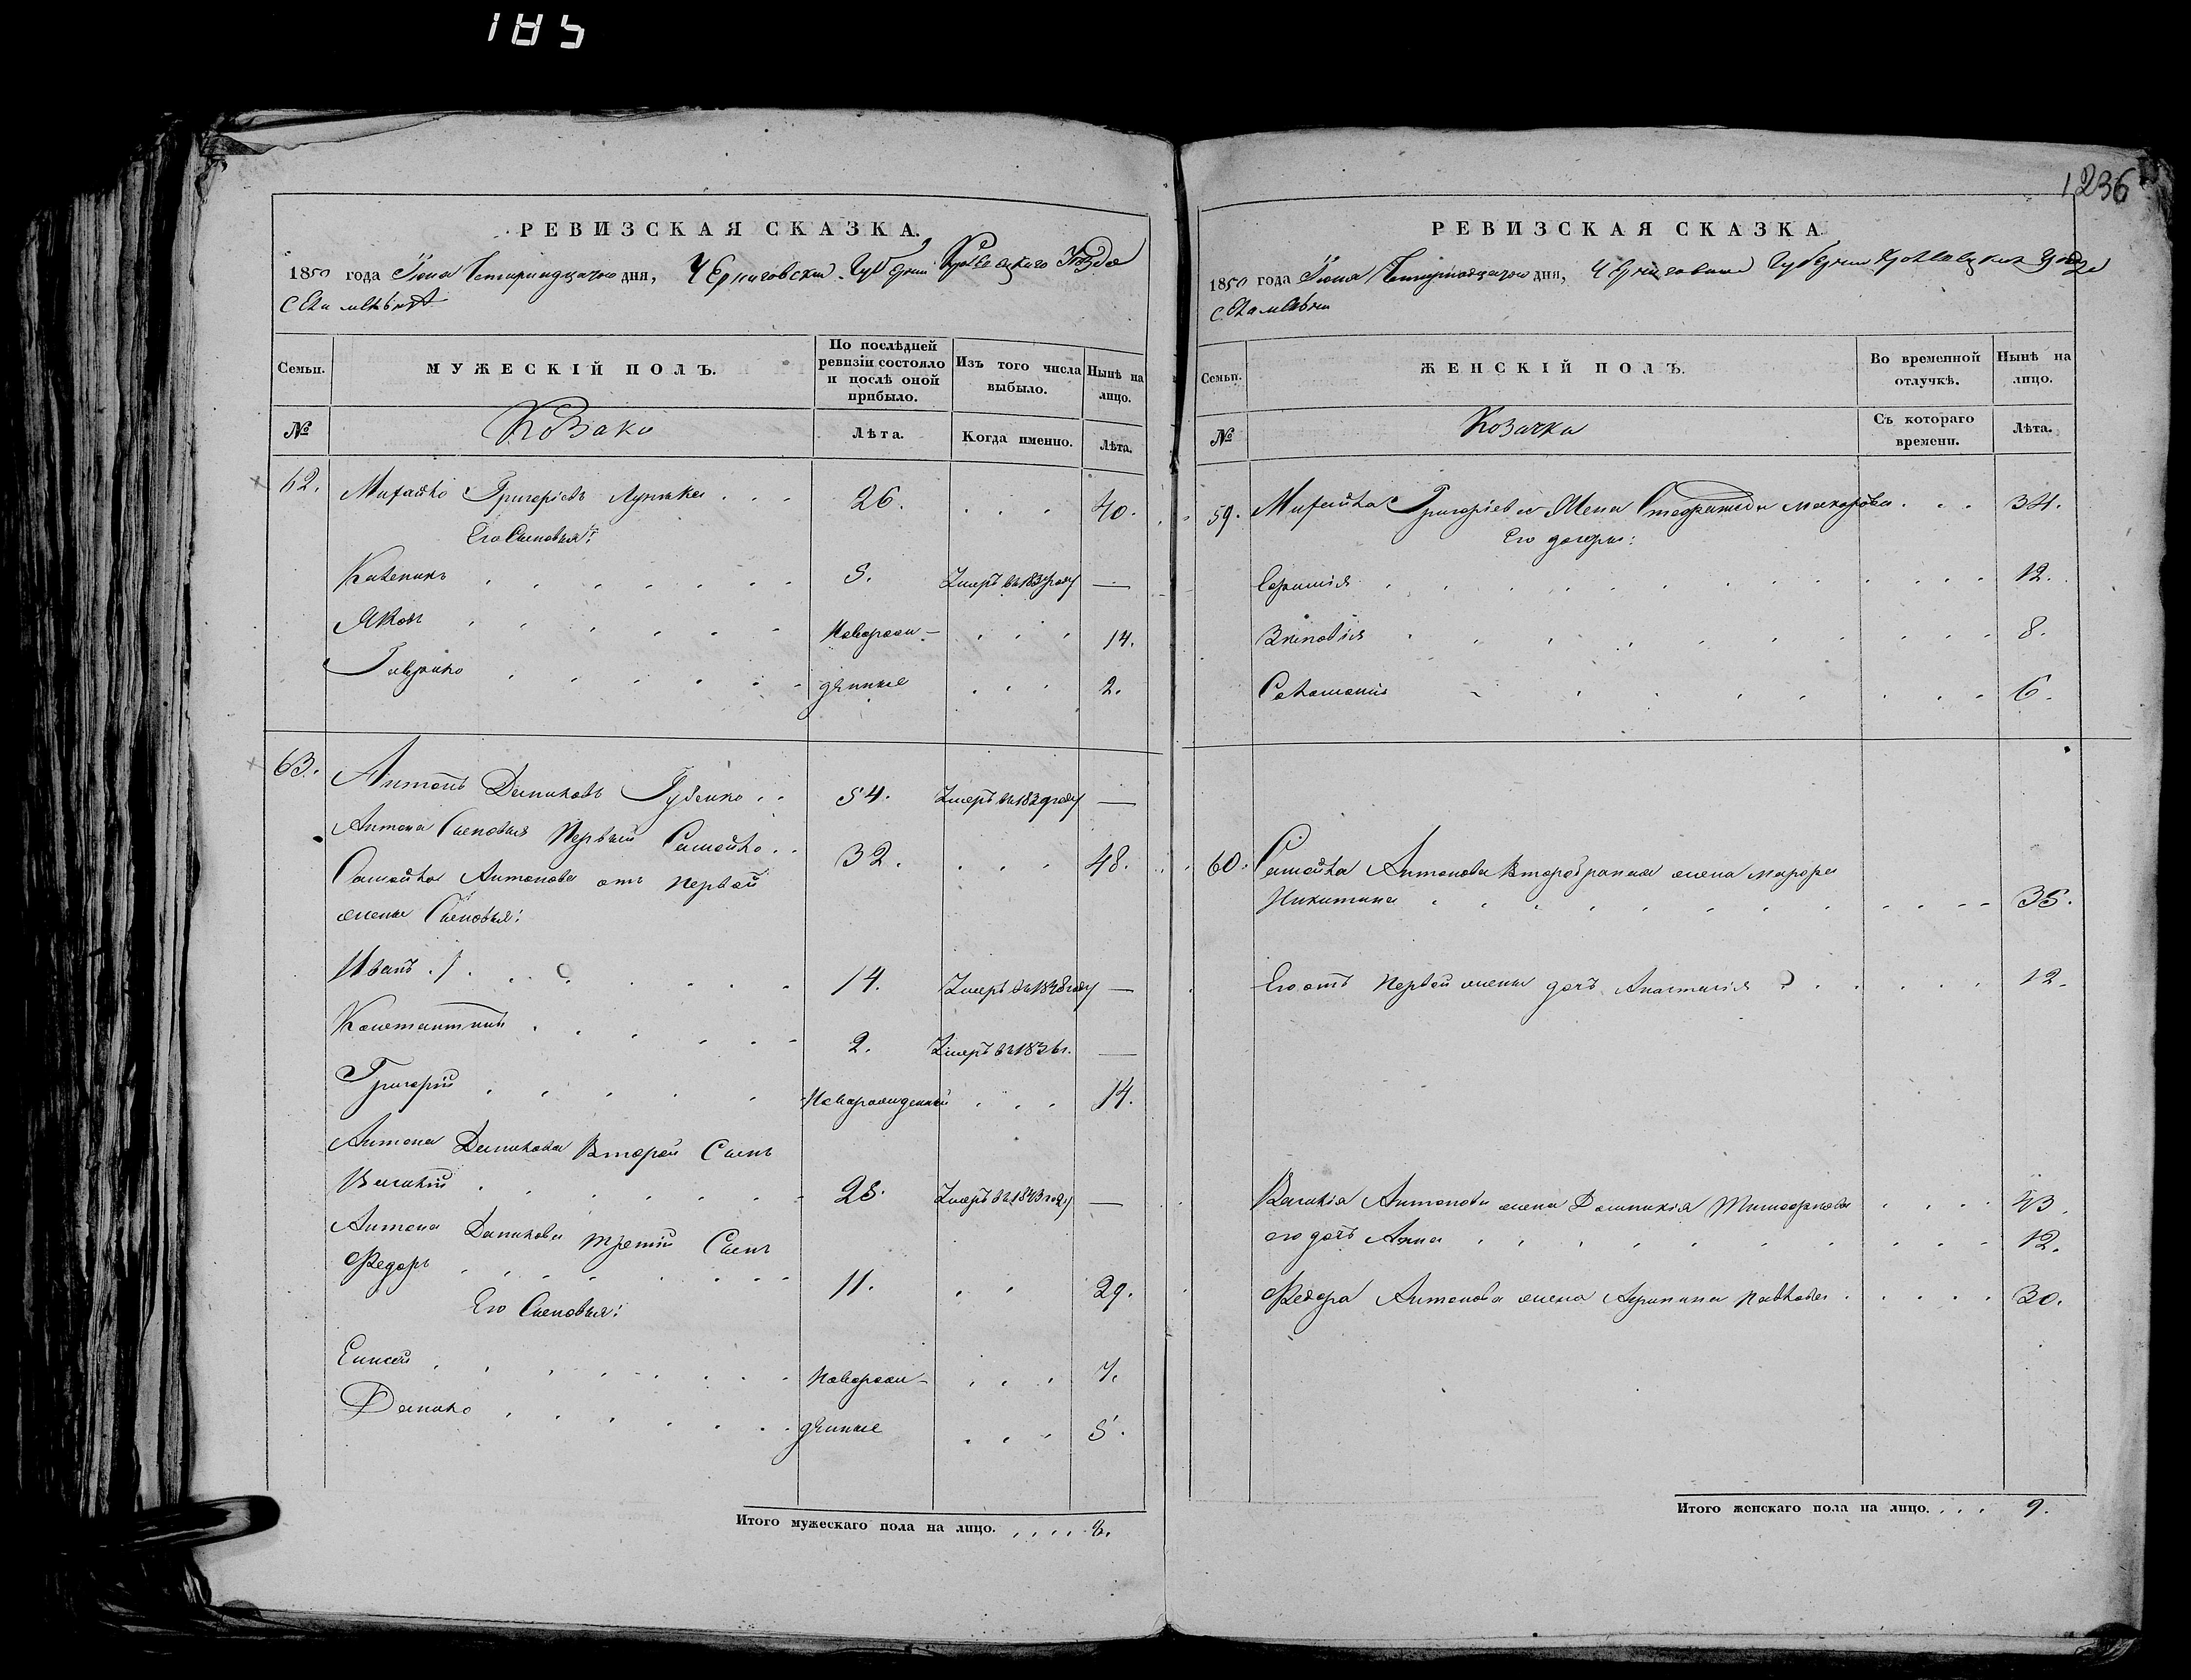 185
РЕВИЗСКАЯ СКАЗКА.
1850 года Іюня Четырнадцатого дня, Черниговской Губерніи Кролевецкого Уѣзда
Семьи. МУЖЕСКІЙ ПОЛЪ. По послѣдней ревизіи состояло и послѣ оной прибыло. Изъ того числа выбыло. Нынѣ на лицо.
№ Козаки Лѣта. Когда именно. Лѣта.
62. Михайло Григорієвъ . . . 26. . . . 40.
Его Сыновья:
5. Умеръ въ 183 году —
Яковъ Новорож- . . . 14.
Гаврило денные . . . 2.
63. Антонъ Даниловъ Губенко . . 54. Умеръ въ 1839 году —
Антона Сыновья Первый Самойло . . 32. . . . 48.
Самойла Антонова отъ первой
жены Сыновья:
Иванъ 14. Умеръ въ 1848 году —
Константинъ 2. Умеръ въ 1836 г. —
Григорій Новорожденный . . . 14.
Антона Данилова Второй Сынъ
Василій 25. Умеръ въ 1843 году —
Антона Данилова Третій Сынъ
Федоръ 11. . . 29.
Его Сыновья:
Елисей Новорож- . . . 7.
Данило денные . . . 5.
Итого мужескаго пола на лицо. . . . .
1236
РЕВИЗСКАЯ СКАЗКА
1850 года Іюня Четырнадцатого дня, Черниговской Губерніи Кролевецкого Уѣзда
Семьи. ЖЕНСКІЙ ПОЛЪ. Во временной отлучкѣ. Нынѣ на лицо.
№ Козачки Съ котораго времени. Лѣта.
59. Михайла Григоріева Жена Стефанида Макарова . . . 34.
Его дочери:
12.
Зиновія 8.
Соломонія 6.
60. Самойла Антонова Второбрачная жена Марфа
Никитина 35.
Его отъ первой жены дочь Анастасія 12.
Василія Антонова жена Домникія Тимофѣева . . . 43.
его дочь Анна 12.
Федора Антонова жена Агрипина Павлова 30.
Итого женскаго пола на лицо. . . . 9.